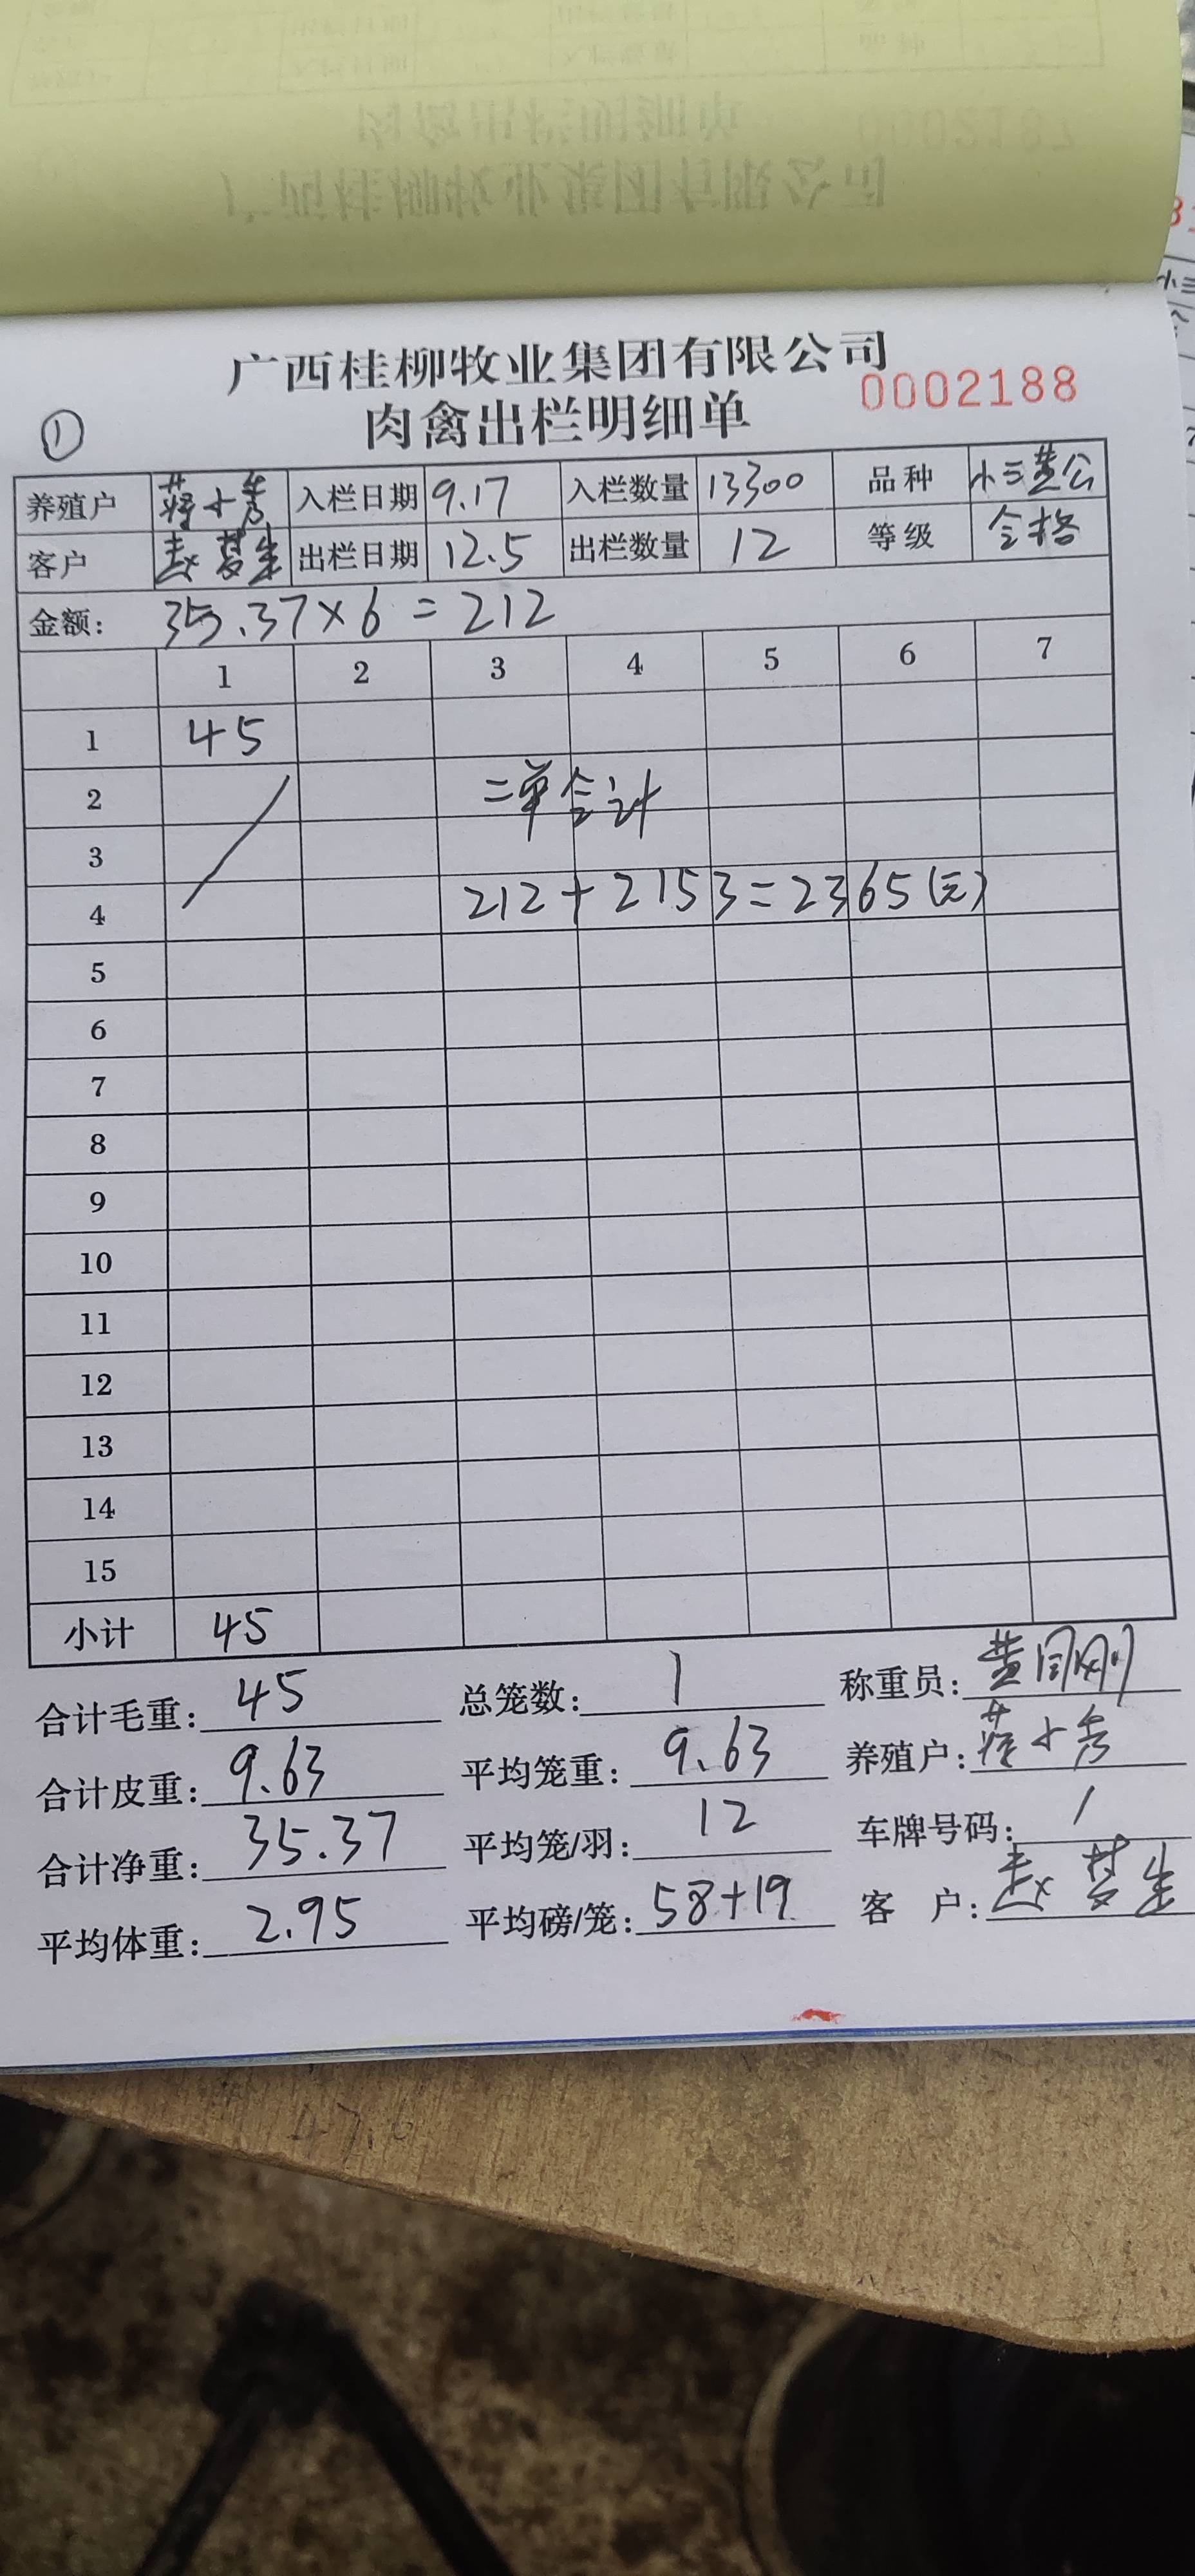 广西桂柳牧业集团有限公司
肉禽出栏明细单
0002188
①
养殖户 蒋小秀 入栏日期 9.17 入栏数量 13300 品种 小三黄公
客户 赵 出栏日期 12.5 出栏数量 12 等级 合格
金额: 35.37×6=212
1 2 3 4 5 6 7
1 45
2 二单合计
3
4 212+2153=2365(元)
5
6
7
8
9
10
11
12
13
14
15
小计 45
合计毛重: 45 总笼数: 1 称重员: 黄
合计皮重: 9.63 平均笼重: 9.63 养殖户: 蒋小秀
合计净重: 35.37 平均笼/羽: 12 车牌号码: /
平均体重: 2.95 平均磅/笼: 58+19 客 户: 赵